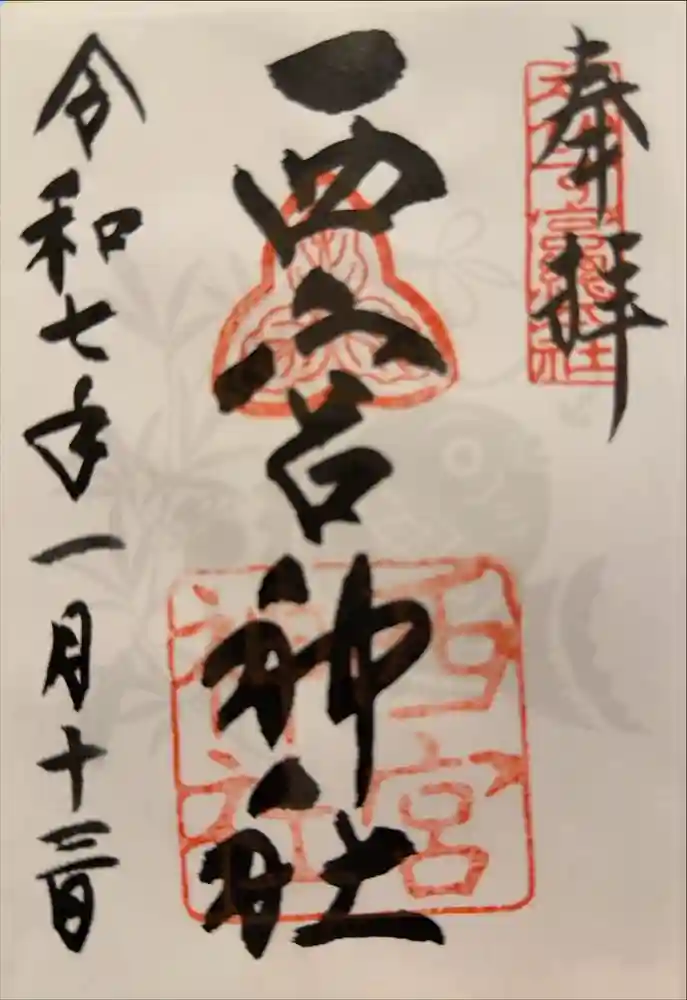 奉拝
西宮神社
西宮神社
令和七年一月十三日